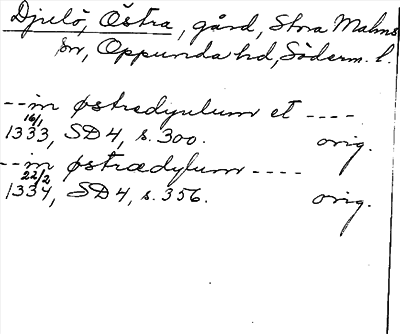 Djulö, Östra, gård, Stora Malms
sn, Oppunda hd, Söderm. l.
--in østredyulum et ----
16/1 1333, SD4, s. 300. orig.
--in østrædylum ----
22/2 1334, SD4, s. 356. orig.